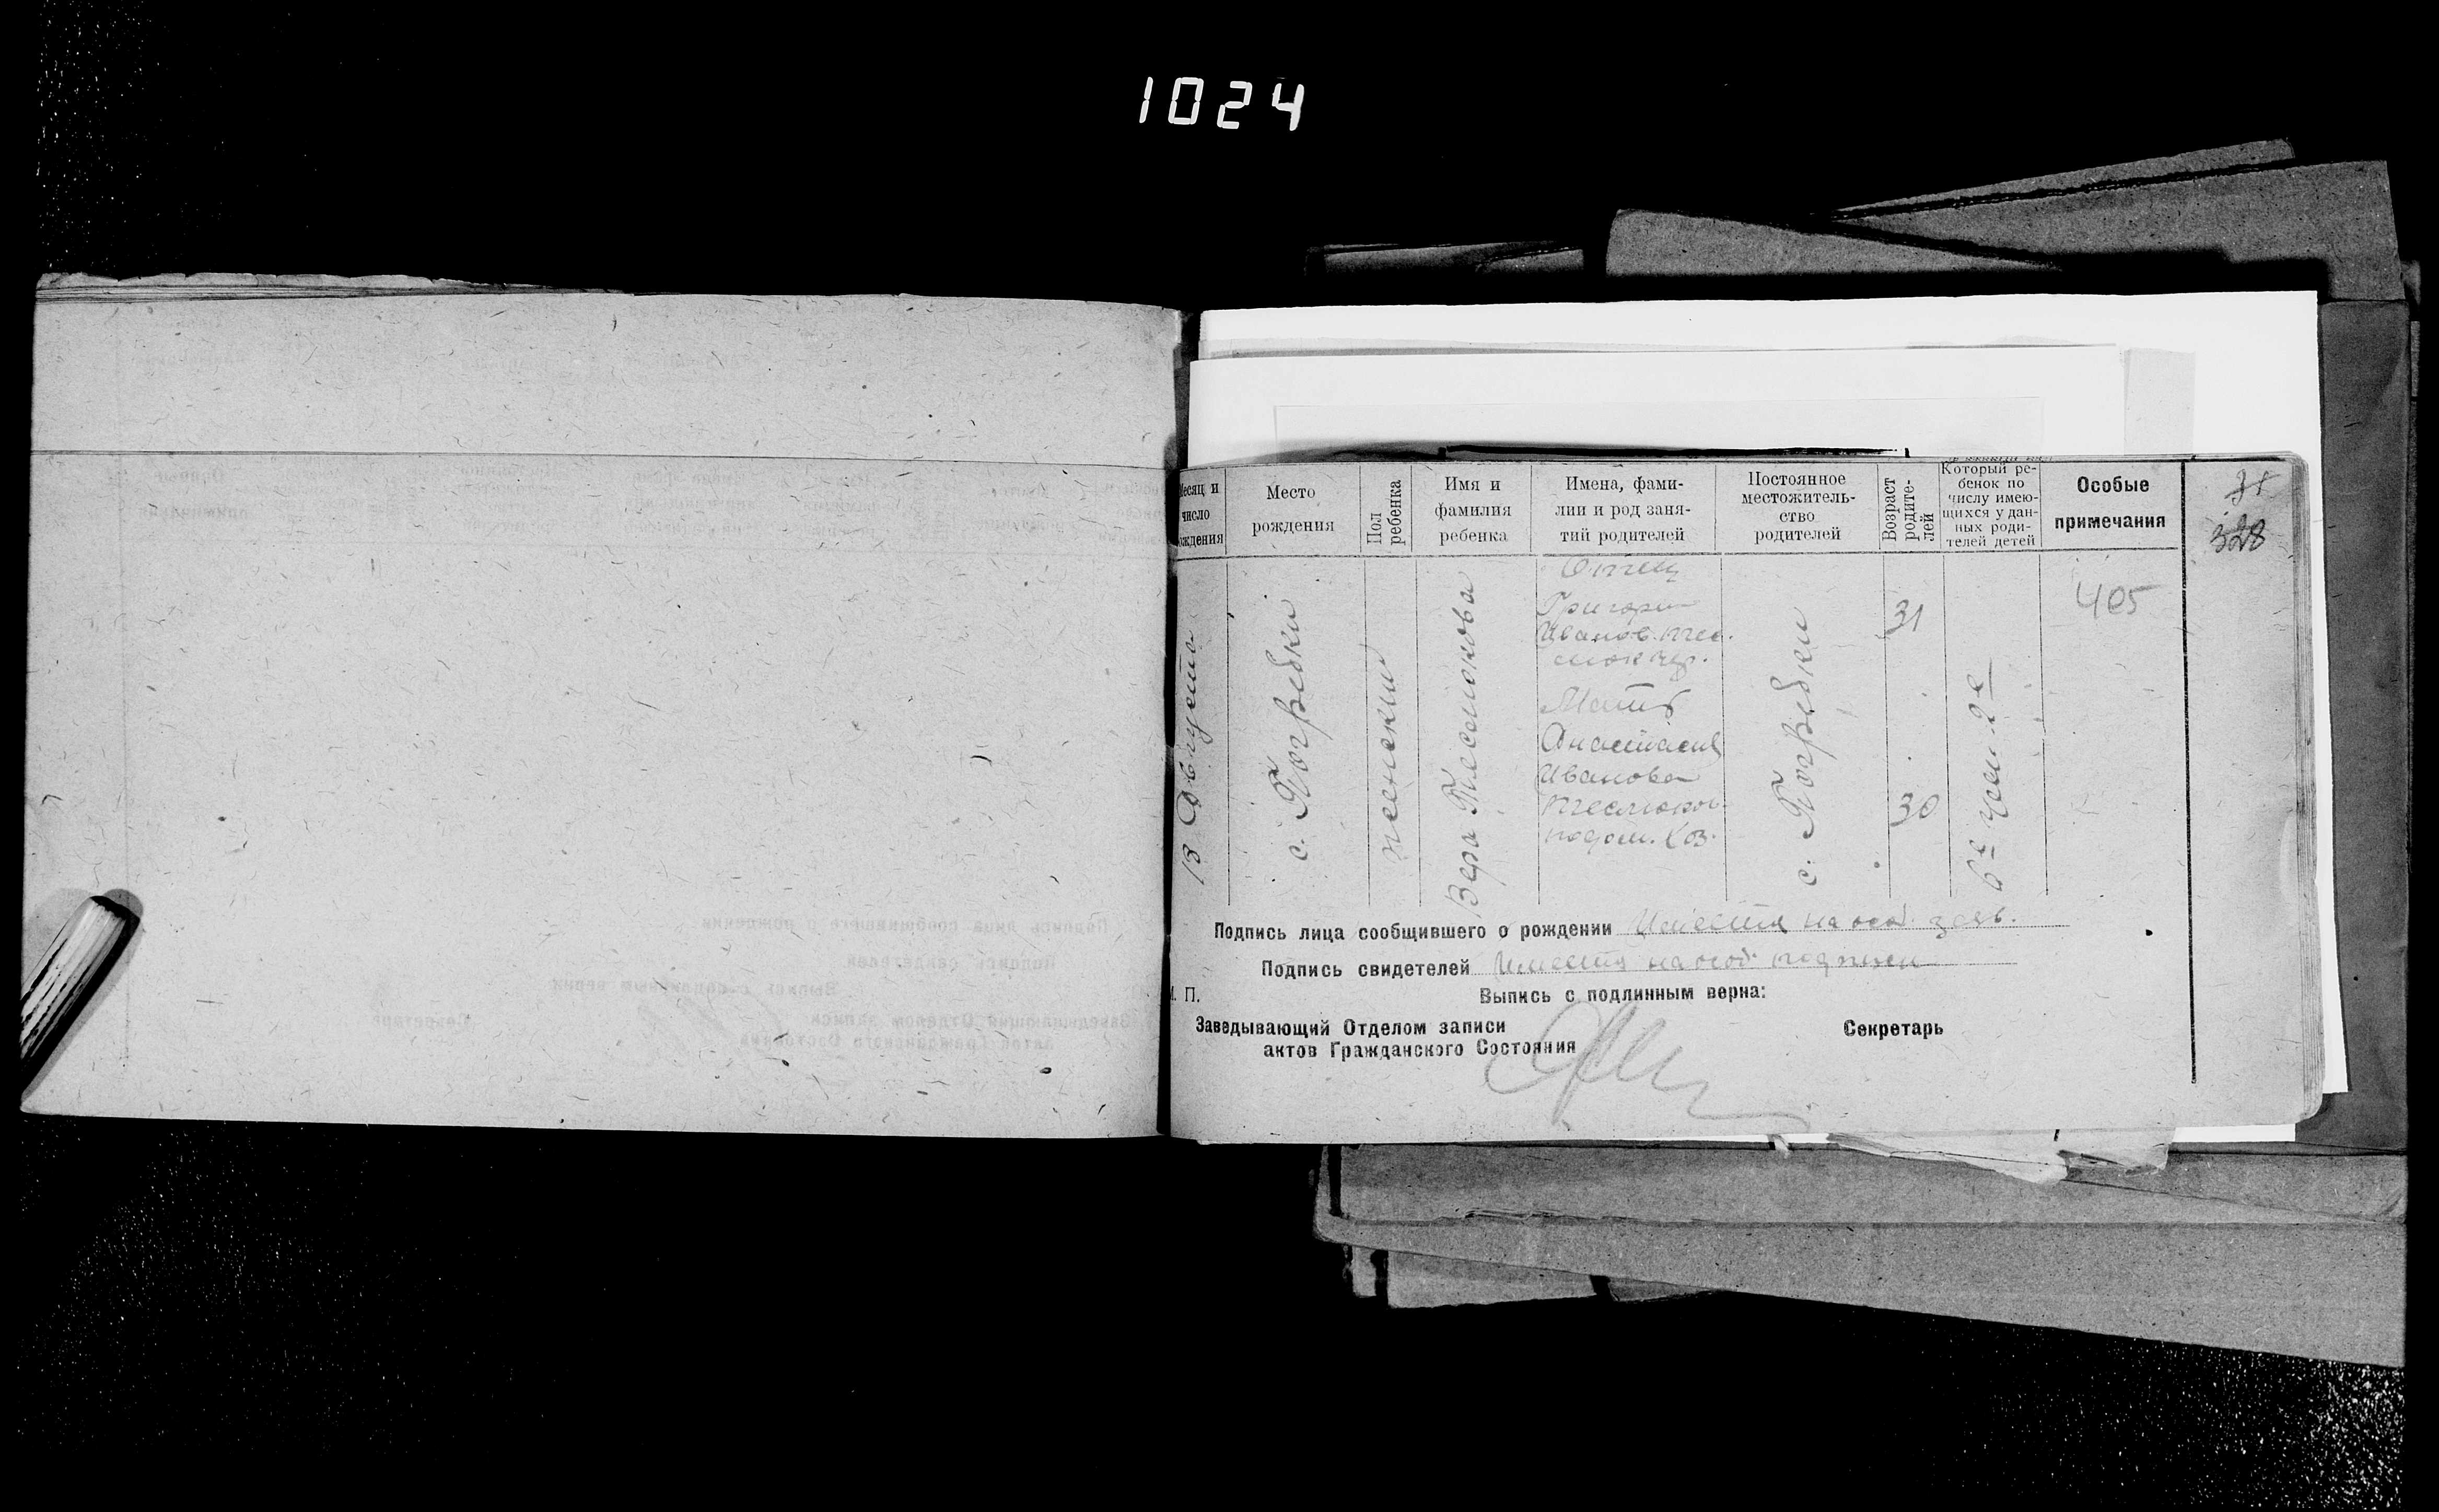 1024
Месяц и
число
рождения
Место
рождения
Пол
ребенка
Имя и
фамилия
ребенка
Имена, фами-
лии и род заня-
тий родителей
Постоянное
местожитель-
ство
родителей
Возраст
родите-
лей
Который ре-
бенок по
числу имею-
щихся у дан-
ных роди-
телей детей
Особые
примечания
31
328
13 Августа
с. Погребки
женский
Вера
Отец
Григорий
Иванов.
Мать
Анастасия
Иванова
с. Погребки
31
30
405
Подпись лица сообщившего о рождении Имеется на особ. заяв.
Подпись свидетелей Имеется на особ.
М. П.
Выпись с подлинным верна:
Заведывающий Отделом записи
актов Гражданского Состояния
Секретарь